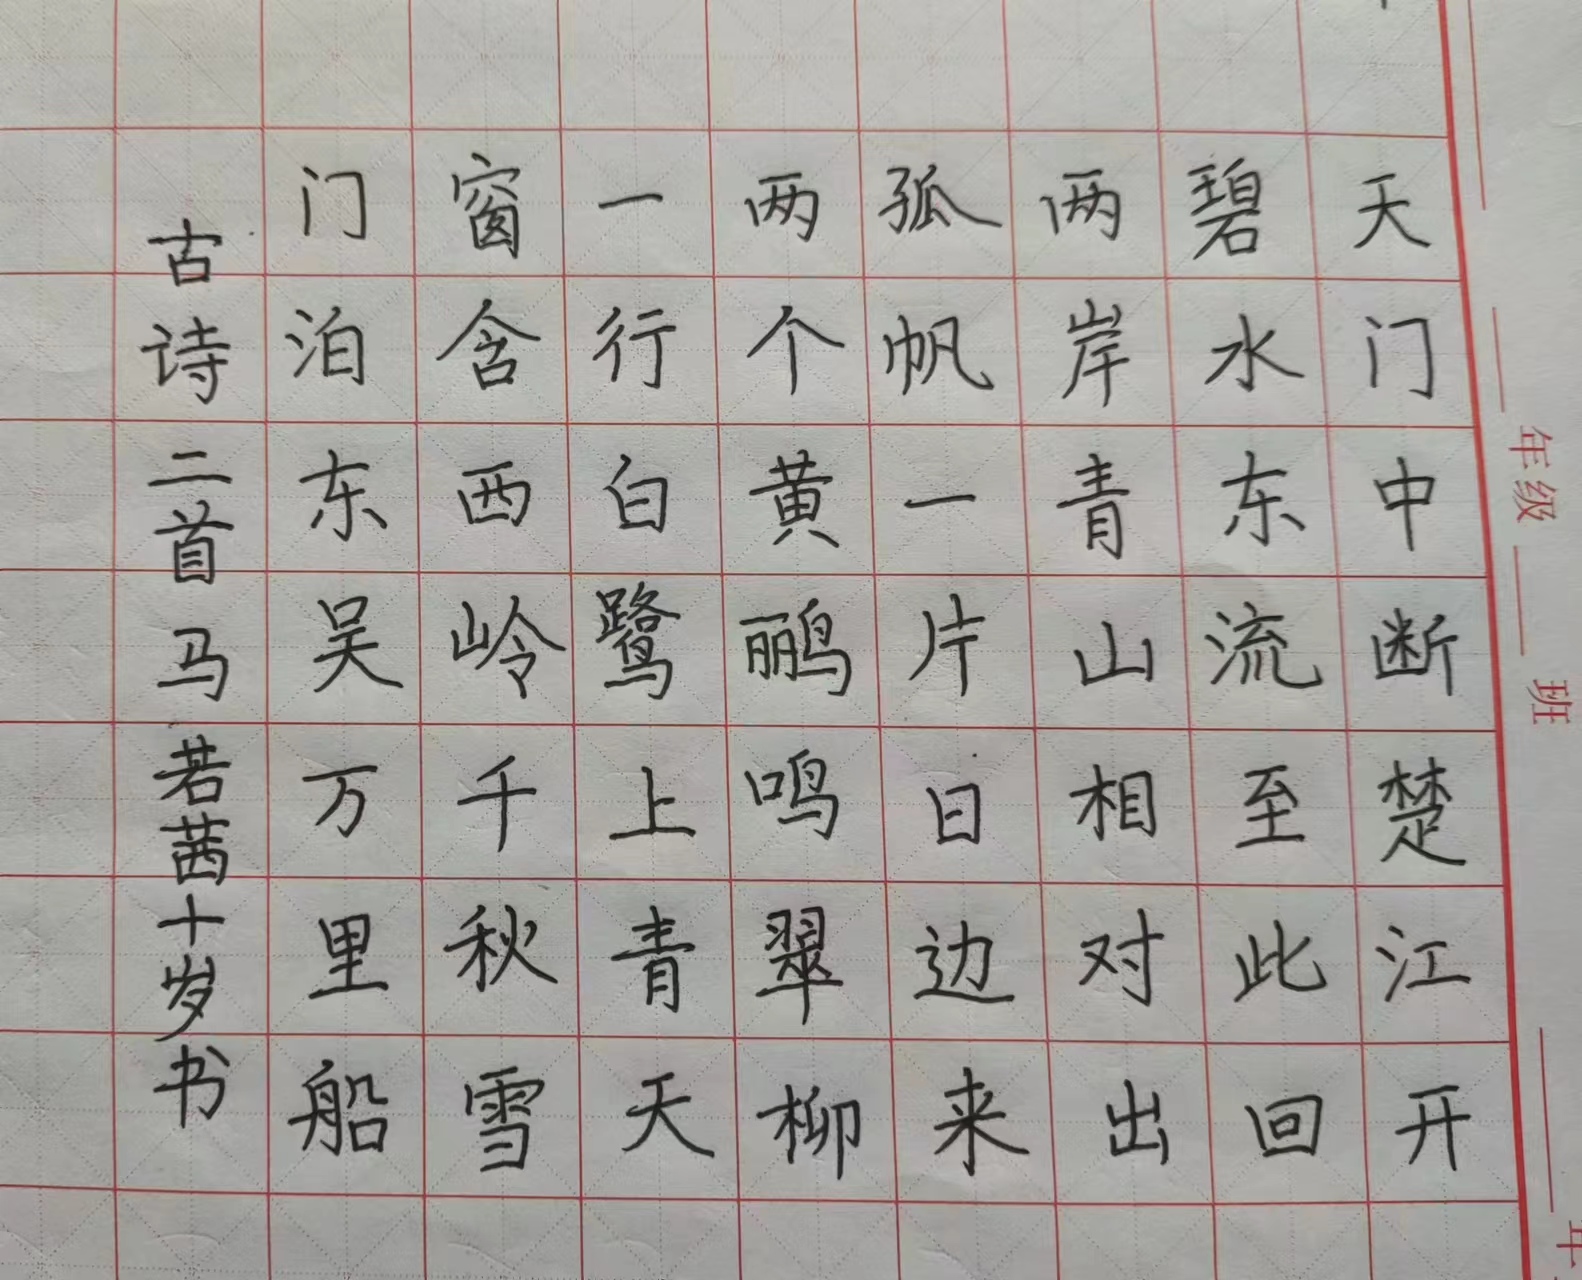 年级 班
天门中断楚江开
碧水东流至此回
两岸青山相对出
孤帆一片日边来
两个黄鹂鸣翠柳
一行白鹭上青天
窗含西岭千秋雪
门泊东吴万里船
古诗二首 马若茜十岁书